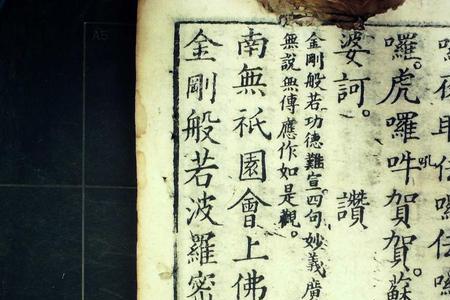 囉。虎囉吽吼賀賀。蘇
婆訶。 讚
金剛般若。功德難宣。四句妙義廣
無說無傳應作如是觀。
南無祇園會上佛
金剛般若波羅密
A5